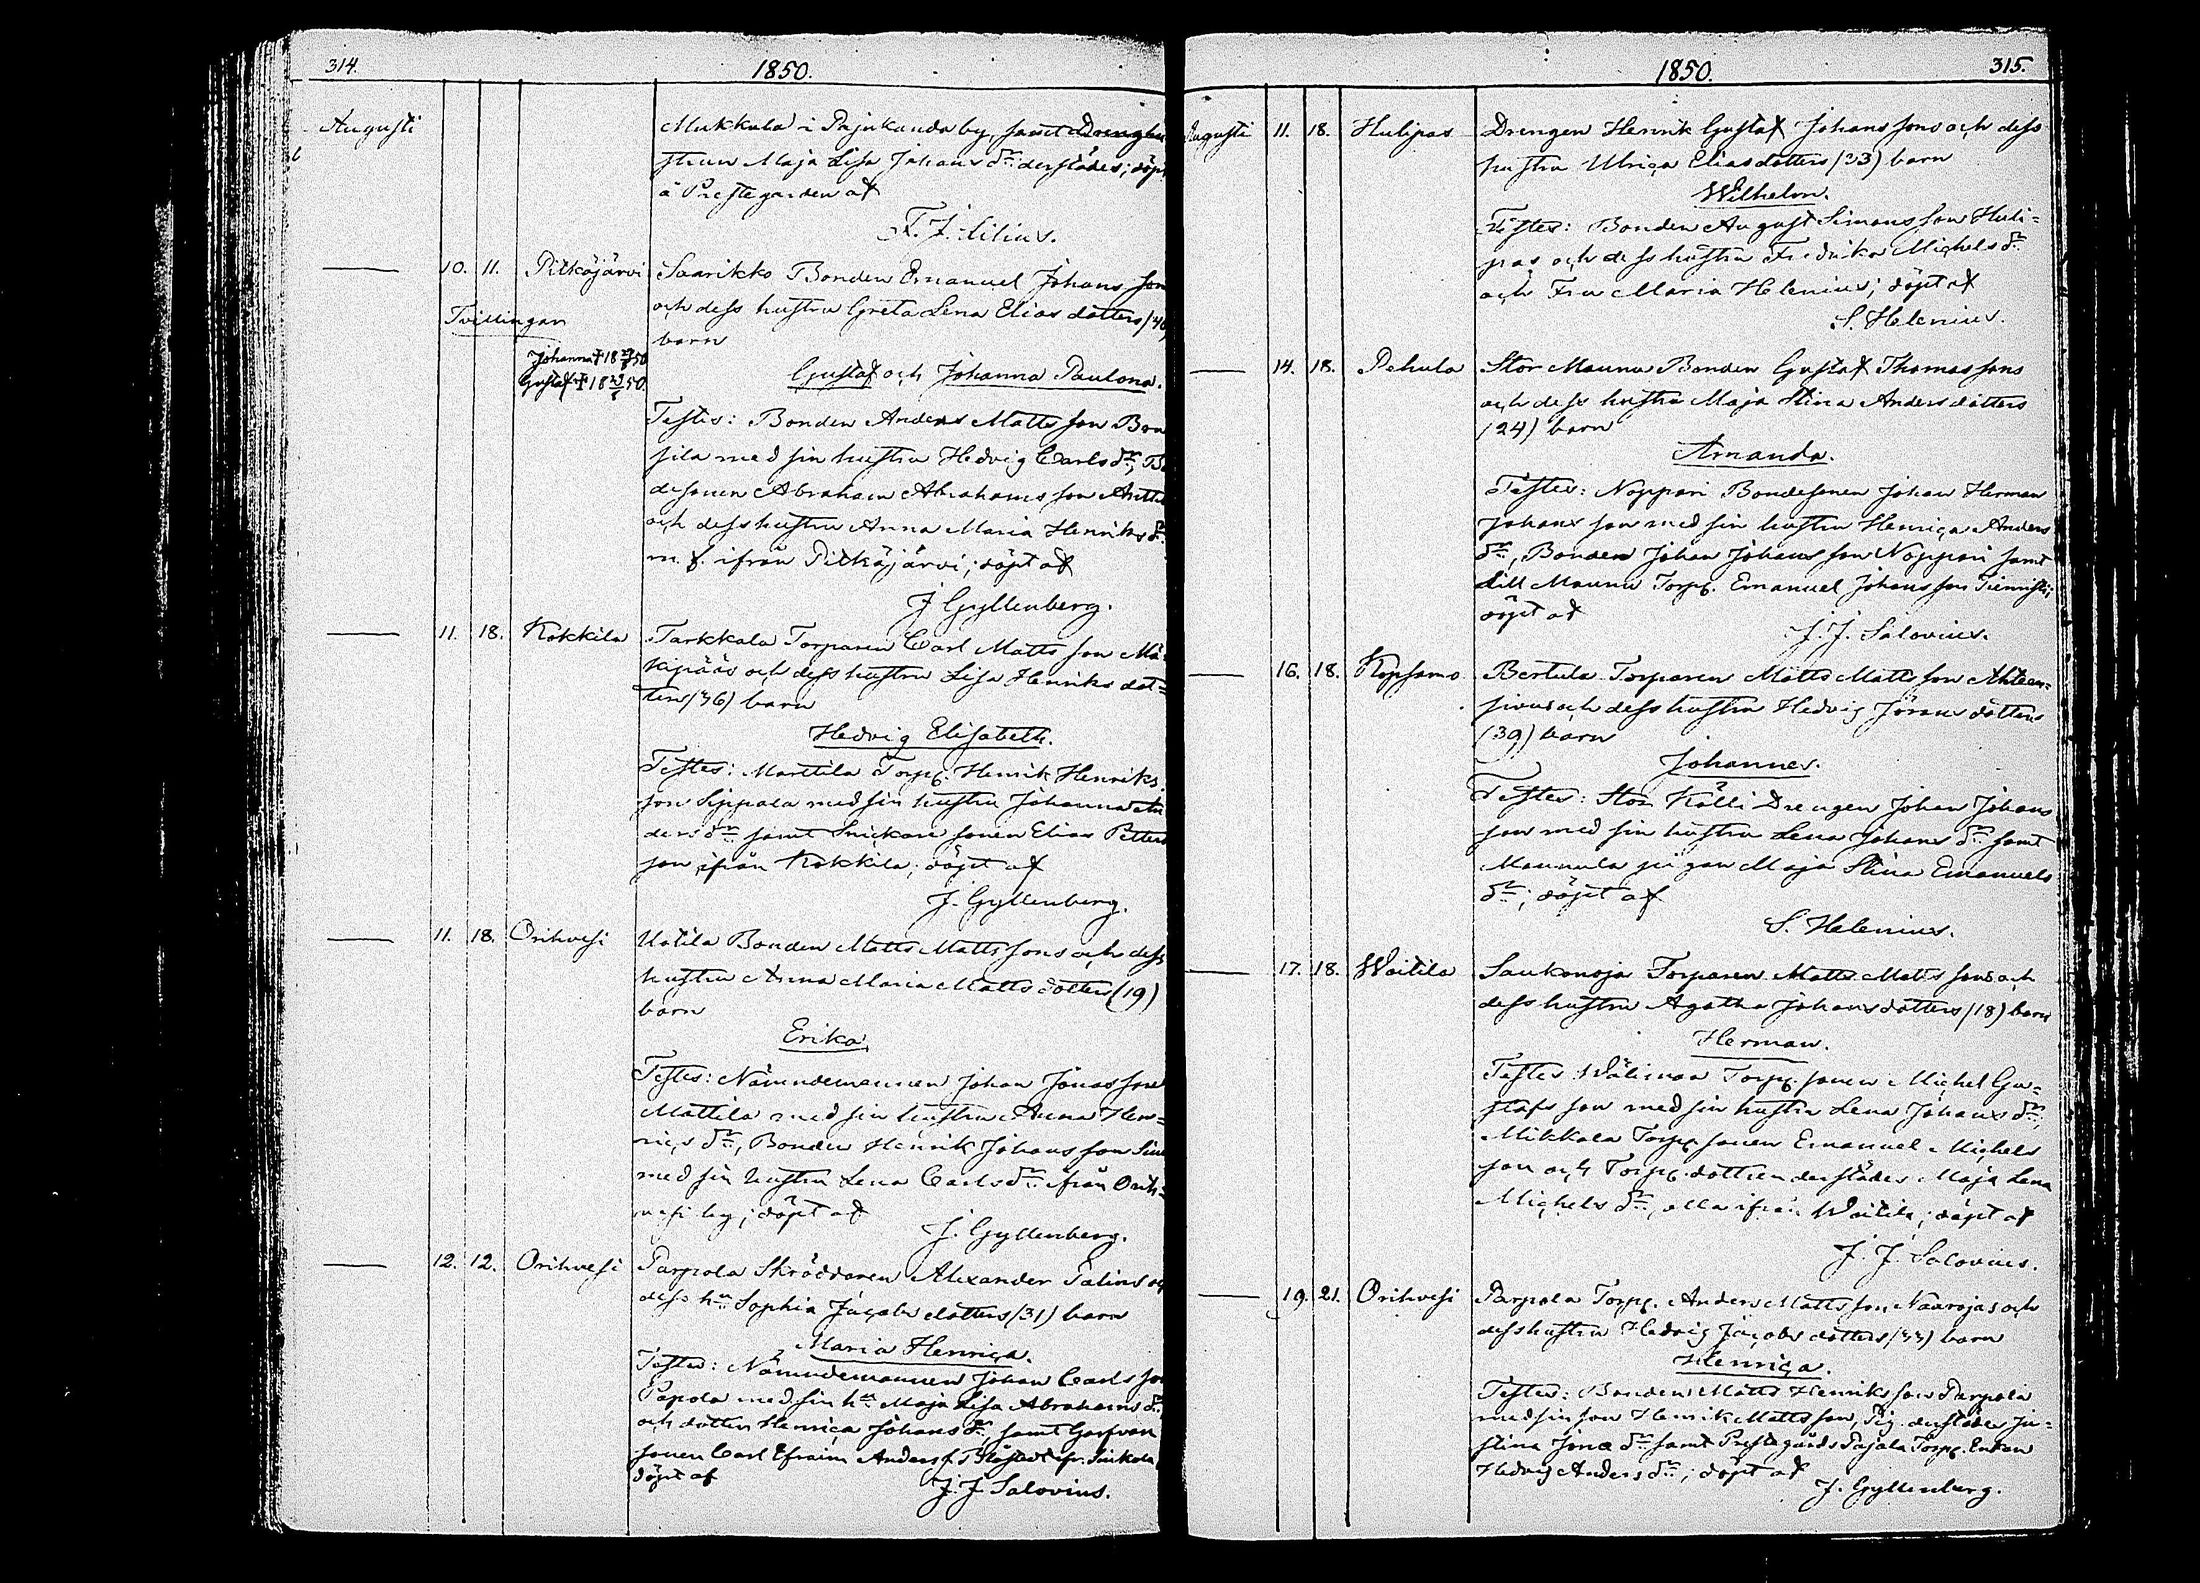 314.
1850.
Augusti
Mukkala i Pajukanda by, samt Drenghu
strun Maja Lisa Johans dr: derstädes; döpt
å Prestegården af
F. J. Lilius.
10. 11. Pitkäjärvi Saarikko Bonden Emanuel Johans son
Tvillingar
och dess hustru Greta Lena Elias dotters /40
barn
Johanna † 18 50
Gustaf † 18 50
Gustaf och Johanna Paulona.
Testes: Bonden Anders Matts son Bon
sila med sin hustru Hedvig Carls dr:, Bo
desonen Abraham Abrahams son Antti
och dess hustru Anna Maria Henriks dr:
m. f. ifrån Pitkäjärvi; döpt af
J Gyllenberg.
11. 18. Kokkila Tarkkala Torparen Carl Matts son Mä
kipääs och dess hustru Lisa Henriks dot=
ters (36) barn
Hedvig Elisabeth.
Testes: Marttila Torp. Henrik Henriks
son Seppala med sin hustru Johanna An
ders dr: samt Snickare sonen Elias Petters
son ifrån Kokkila; döpt af
J. Gyllenberg.
11. 18. Orihvesi Uotila Bonden Matts Matts sons och dess
hustru Anna Maria Matts dotters (19)
barn
Erika
Testes: Nämndemannen Johan Jonas son
Mattila med sin hustru Anna Hen=
rics dr:, Bonden Henrik Johans son Sim
med sin hustru Lena Carls dr: ifrån Orih=
vesi by; döpt af
J. Gyllenberg.
12. 12. Orihvesi Parpola Skräddaren Alexander Palins och
dess hu Sophia Jacobs dotters (31) barn
Maria Henrica.
Testes: Nämndemannen Johan Carls son
Papola med sin hu Maja Lisa Abrahams dr:
och dotter Henrica Johans dr:, samt Garfvare
sonen Carl Efraim Anders s. Blåfield ifr. Sirkola
döpt af
J. J Salovius.
1850.
315.
Augusti 11. 18. Hulipas Drengen Henrik Gustaf Johans sons och dess
hustru Ulrica Elias dotters /23) barn
Wilhelm.
Testes: Bonden August Simons son Huli=
pas och dess hustru Fredrika Michels dr:
och Fru Maria Helenius; döpt af
S. Helenius.
14. 18. Pehula Stor Maunu Bonden Gustaf Thomas sons
och dess hustru Maja Stina Anders dotters
/24) barn
Amanda.
Testes: Noppari Bondesonen Johan Herman
Johans son med sin hustru Henrica Anders
dr:, Bonden Johan Johans son Noppari samt
Lill Maunu Torp. Emanuel Johans son Tiemisti;
döpt af
J. J. Salovius.
16. 18. Kopsamo Bertula Torparen Matts Matts son Ahteen=
sivus och dess hustru Hedvig Jörans dotters
(39) barn
Johannes.
Testes: Stor Källi Drengen Johan Johans
son med sin hustru Lena Johans dr: samt
Mannula pigan Maja Stina Emanuels
dr:; döpt af
S. Helenius.
17. 18. Waitila Saukonoja Torparen Matts Matts sons och
dess hustru Agatha Johans dotters /18) barn
Herman.
Testes: Wälimaa Torp. sonen Michel Gu=
stafs son med sin hustru Lena Johans dr:,
Mikkala Torp. sonen Emanuel Michels
son och Torp. dottren derstädes Maja Lena
Michels dr:, alla ifrån Waitila; döpt af
J. J. Salovius.
19. 21. Orihvesi Parpola Torp. Anders Matts son Naarojas och
dess hustru Hedvig Jacobs dotters /33) barn
Henrica.
Testes: Bonden Matts Henriks son Parpola
med sin son Henrik Matts son, Pig. derstädes Ju=
stina Jona dr: samt Prestegårds Pajala Torp. Enkan
Hedvig Anders dr:; döpt af
J. Gyllenberg.